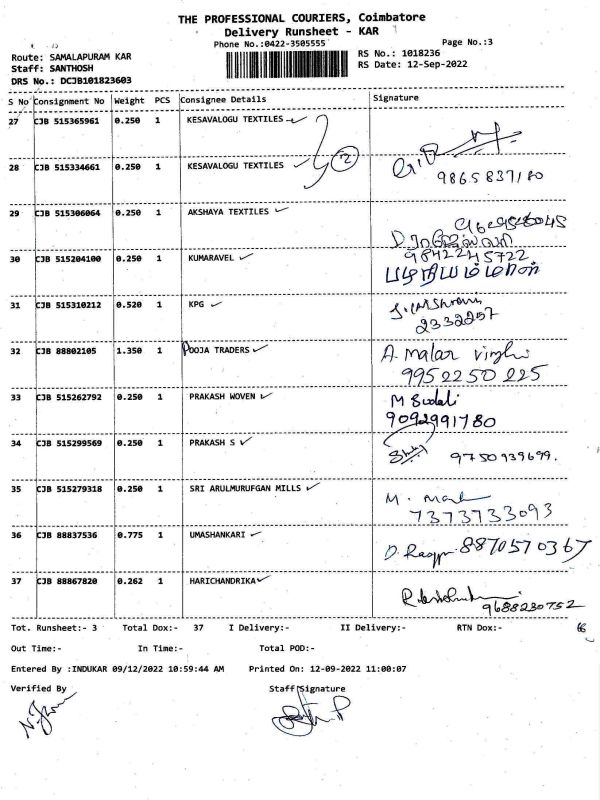 THE PROFESSIONAL COURIERS, Coimbatore
Delivery Runsheet - KAR
Phone No.:0422-3505555
Page No.:3
Route: SAMALAPURAM KAR
RS No.: 1018236
Staff: SANTHOSH
RS Date: 12-Sep-2022
DRS No.: DCJB101823603
S No Consignment No Weight PCS Consignee Details Signature
27 CJB 515365961 0.250 1 KESAVALOGU TEXTILES
2
28 CJB 515334661 0.250 1 KESAVALOGU TEXTILES
9865837180
29 CJB 515306064 0.250 1 AKSHAYA TEXTILES
30 CJB 515204100 0.250 1 KUMARAVEL 9842245722
பழநியம்மாள்
31 CJB 515310212 0.520 1 KPG
2332257
32 CJB 88802105 1.350 1 POOJA TRADERS A. Malar
9952250225
33 CJB 515262792 0.250 1 PRAKASH WOVEN M
9092991780
34 CJB 515299569 0.250 1 PRAKASH S
9750939699.
35 CJB 515279318 0.250 1 SRI ARULMURUFGAN MILLS M.
7373733093
36 CJB 88837536 0.775 1 UMASHANKARI 8870570367
37 CJB 88867820 0.262 1 HARICHANDRIKA
9688230752
Tot. Runsheet:- 3 Total Dox:- 37 I Delivery:- II Delivery:- RTN Dox:-
Out Time:- In Time:- Total POD:-
Entered By :INDUKAR 09/12/2022 10:59:44 AM Printed On: 12-09-2022 11:00:07
Verified By Staff Signature